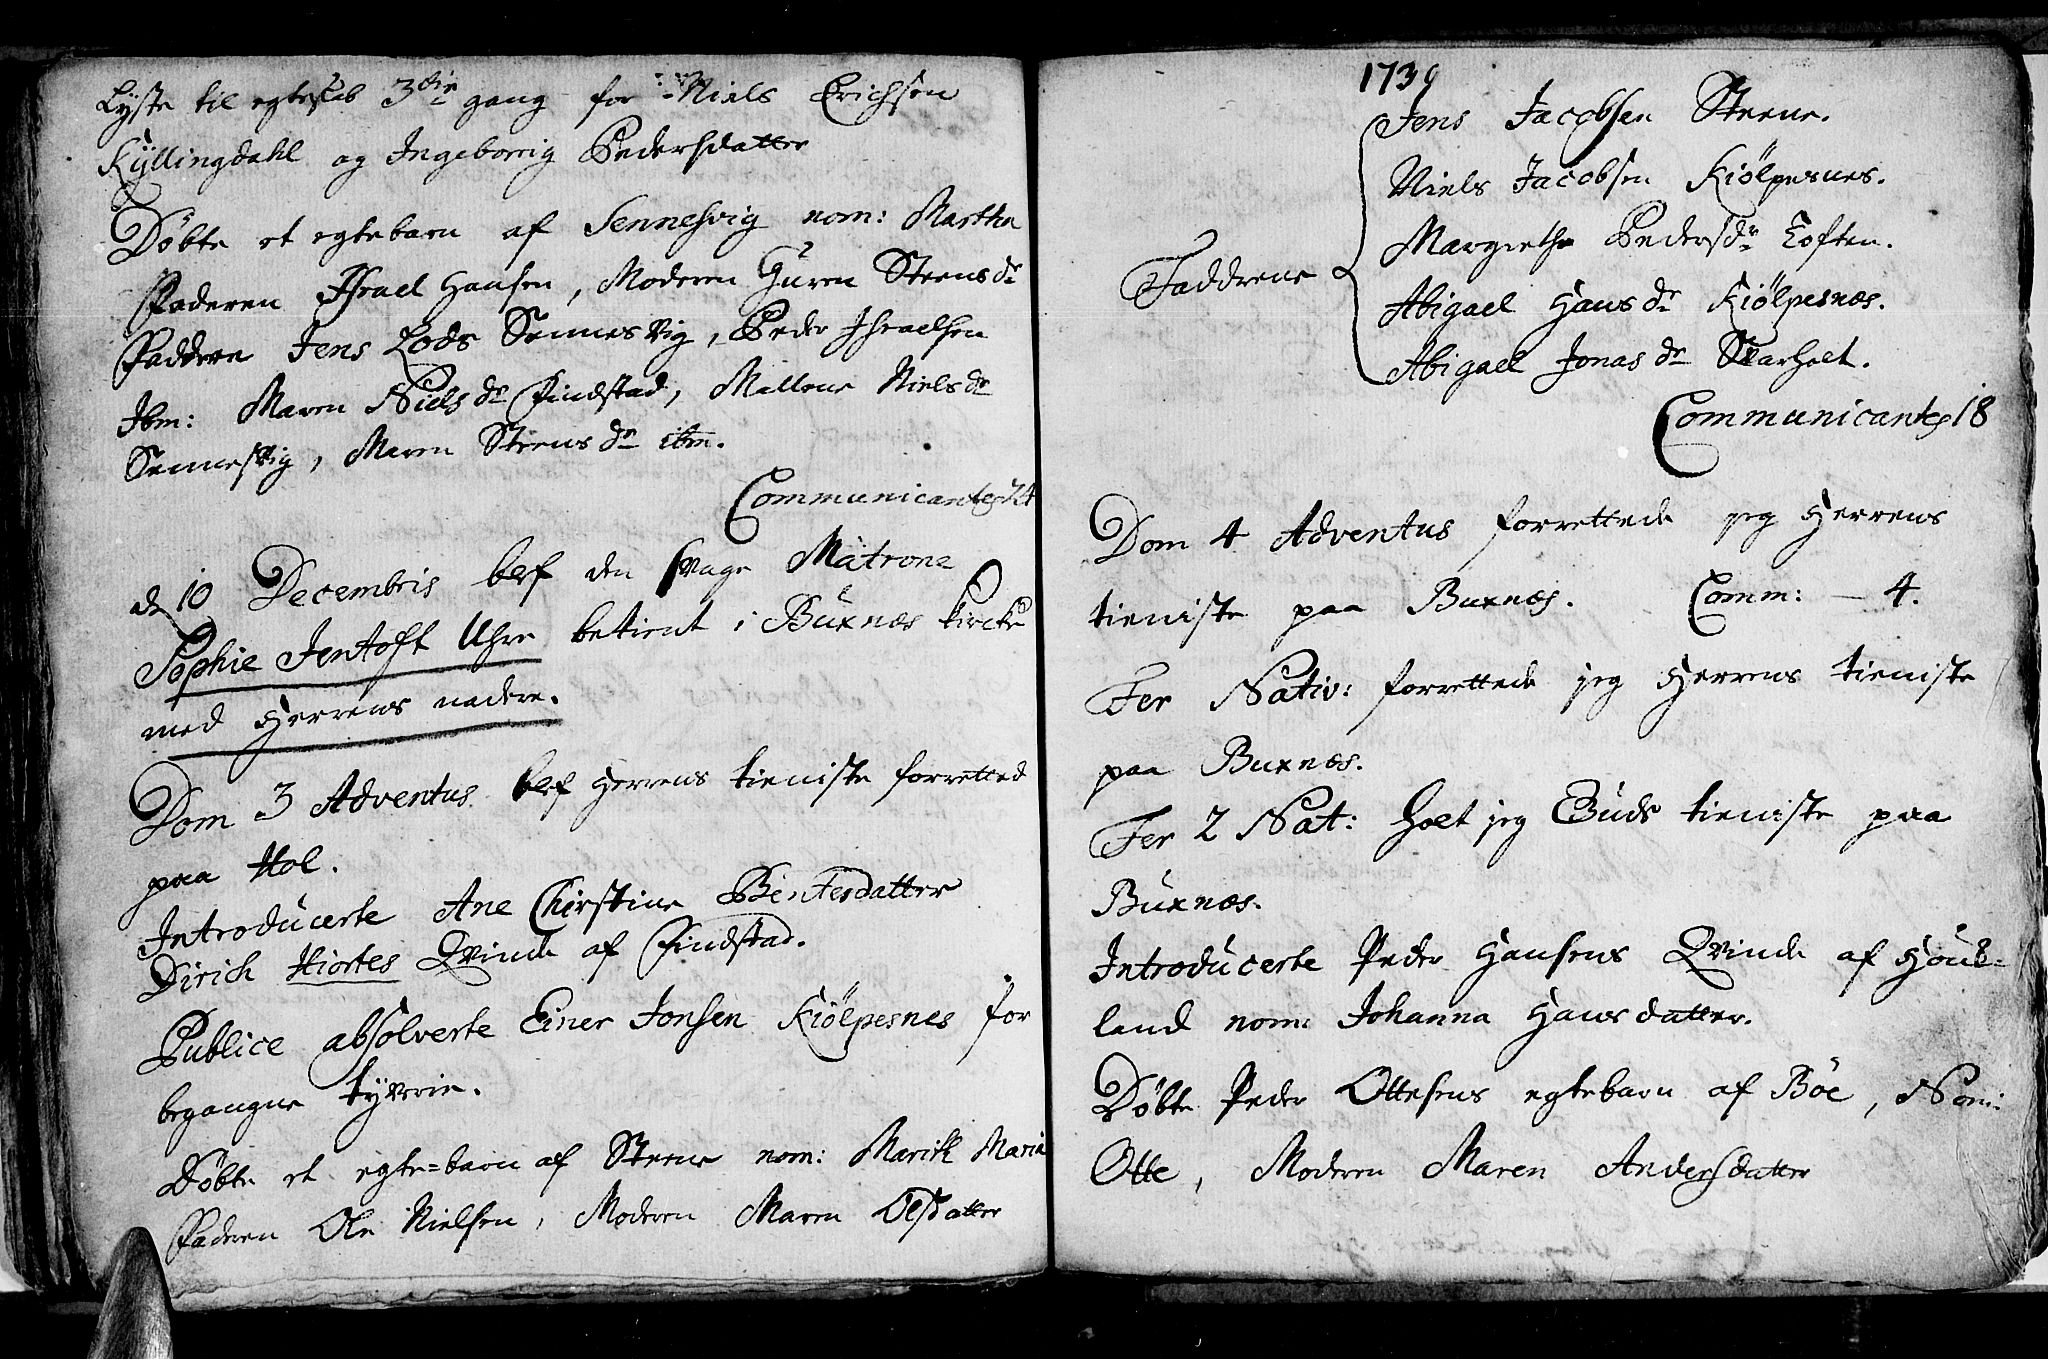 Lyste til egteskab 3die gang for Niels Erichsen
Kyllingdahl og Ingeborrig Pedersdatter
Døbte et egtebarn af Sennesvig nom: Martha
Faderen Israel Hansen, Moderen Guren Steensdr
Faddere Jens Lods Sennesvig, Peder Israelsen
Ibm: Maren Nielsdr Findstad, Mallene Nielsdr
Sennesvig, Maren Steensdr ibm.
Communicantes 24
d 10 Decembris blef den svage Matrone
Sophie Jentoft Uhre betient i Buxnæs kircke
med Herrens nadere.
Dom 3 Adventus blef Herrens tieniste forretted
paa Hol.
Introducerte Ane Chirstine Bentesdatter
Dirich Hiortes Qvinde af Findstad.
Publice absolverte Einer Jonsen Kiölpesnes for
begangne tyverie.
Døbte et egte=barn af Steene nom: Marith Maria
Faderen Ole Nielsen, Moderen Maren Olsdatter
1739
Jens Jacobsen Steene.
Niels Jacobsen Kiölpesnes.
Margrethe Pedersdr Toften.
Faddrene
Abigael Hansdr Kiölpesnæs.
Abigael Jonasdr Skarholt.
Communicantes 18
Dom 4 Adventus forrettede jeg Herrens
tieniste paa Buxnæs. Comm: - 4.
Fer Nativ: forrettede jeg Herrens tieniste
paa Buxnæs.
Fer 2 Nat: holt jeg Guds tieniste paa
Buxnæs.
Introducerte Peder Hansens Qvinde af Houk=
land nom: Johanna Hansdatter.
Døbte Peder Ottesens egtebarn af Böe, Nom:
Otte, Moderen Maren Andersdatter